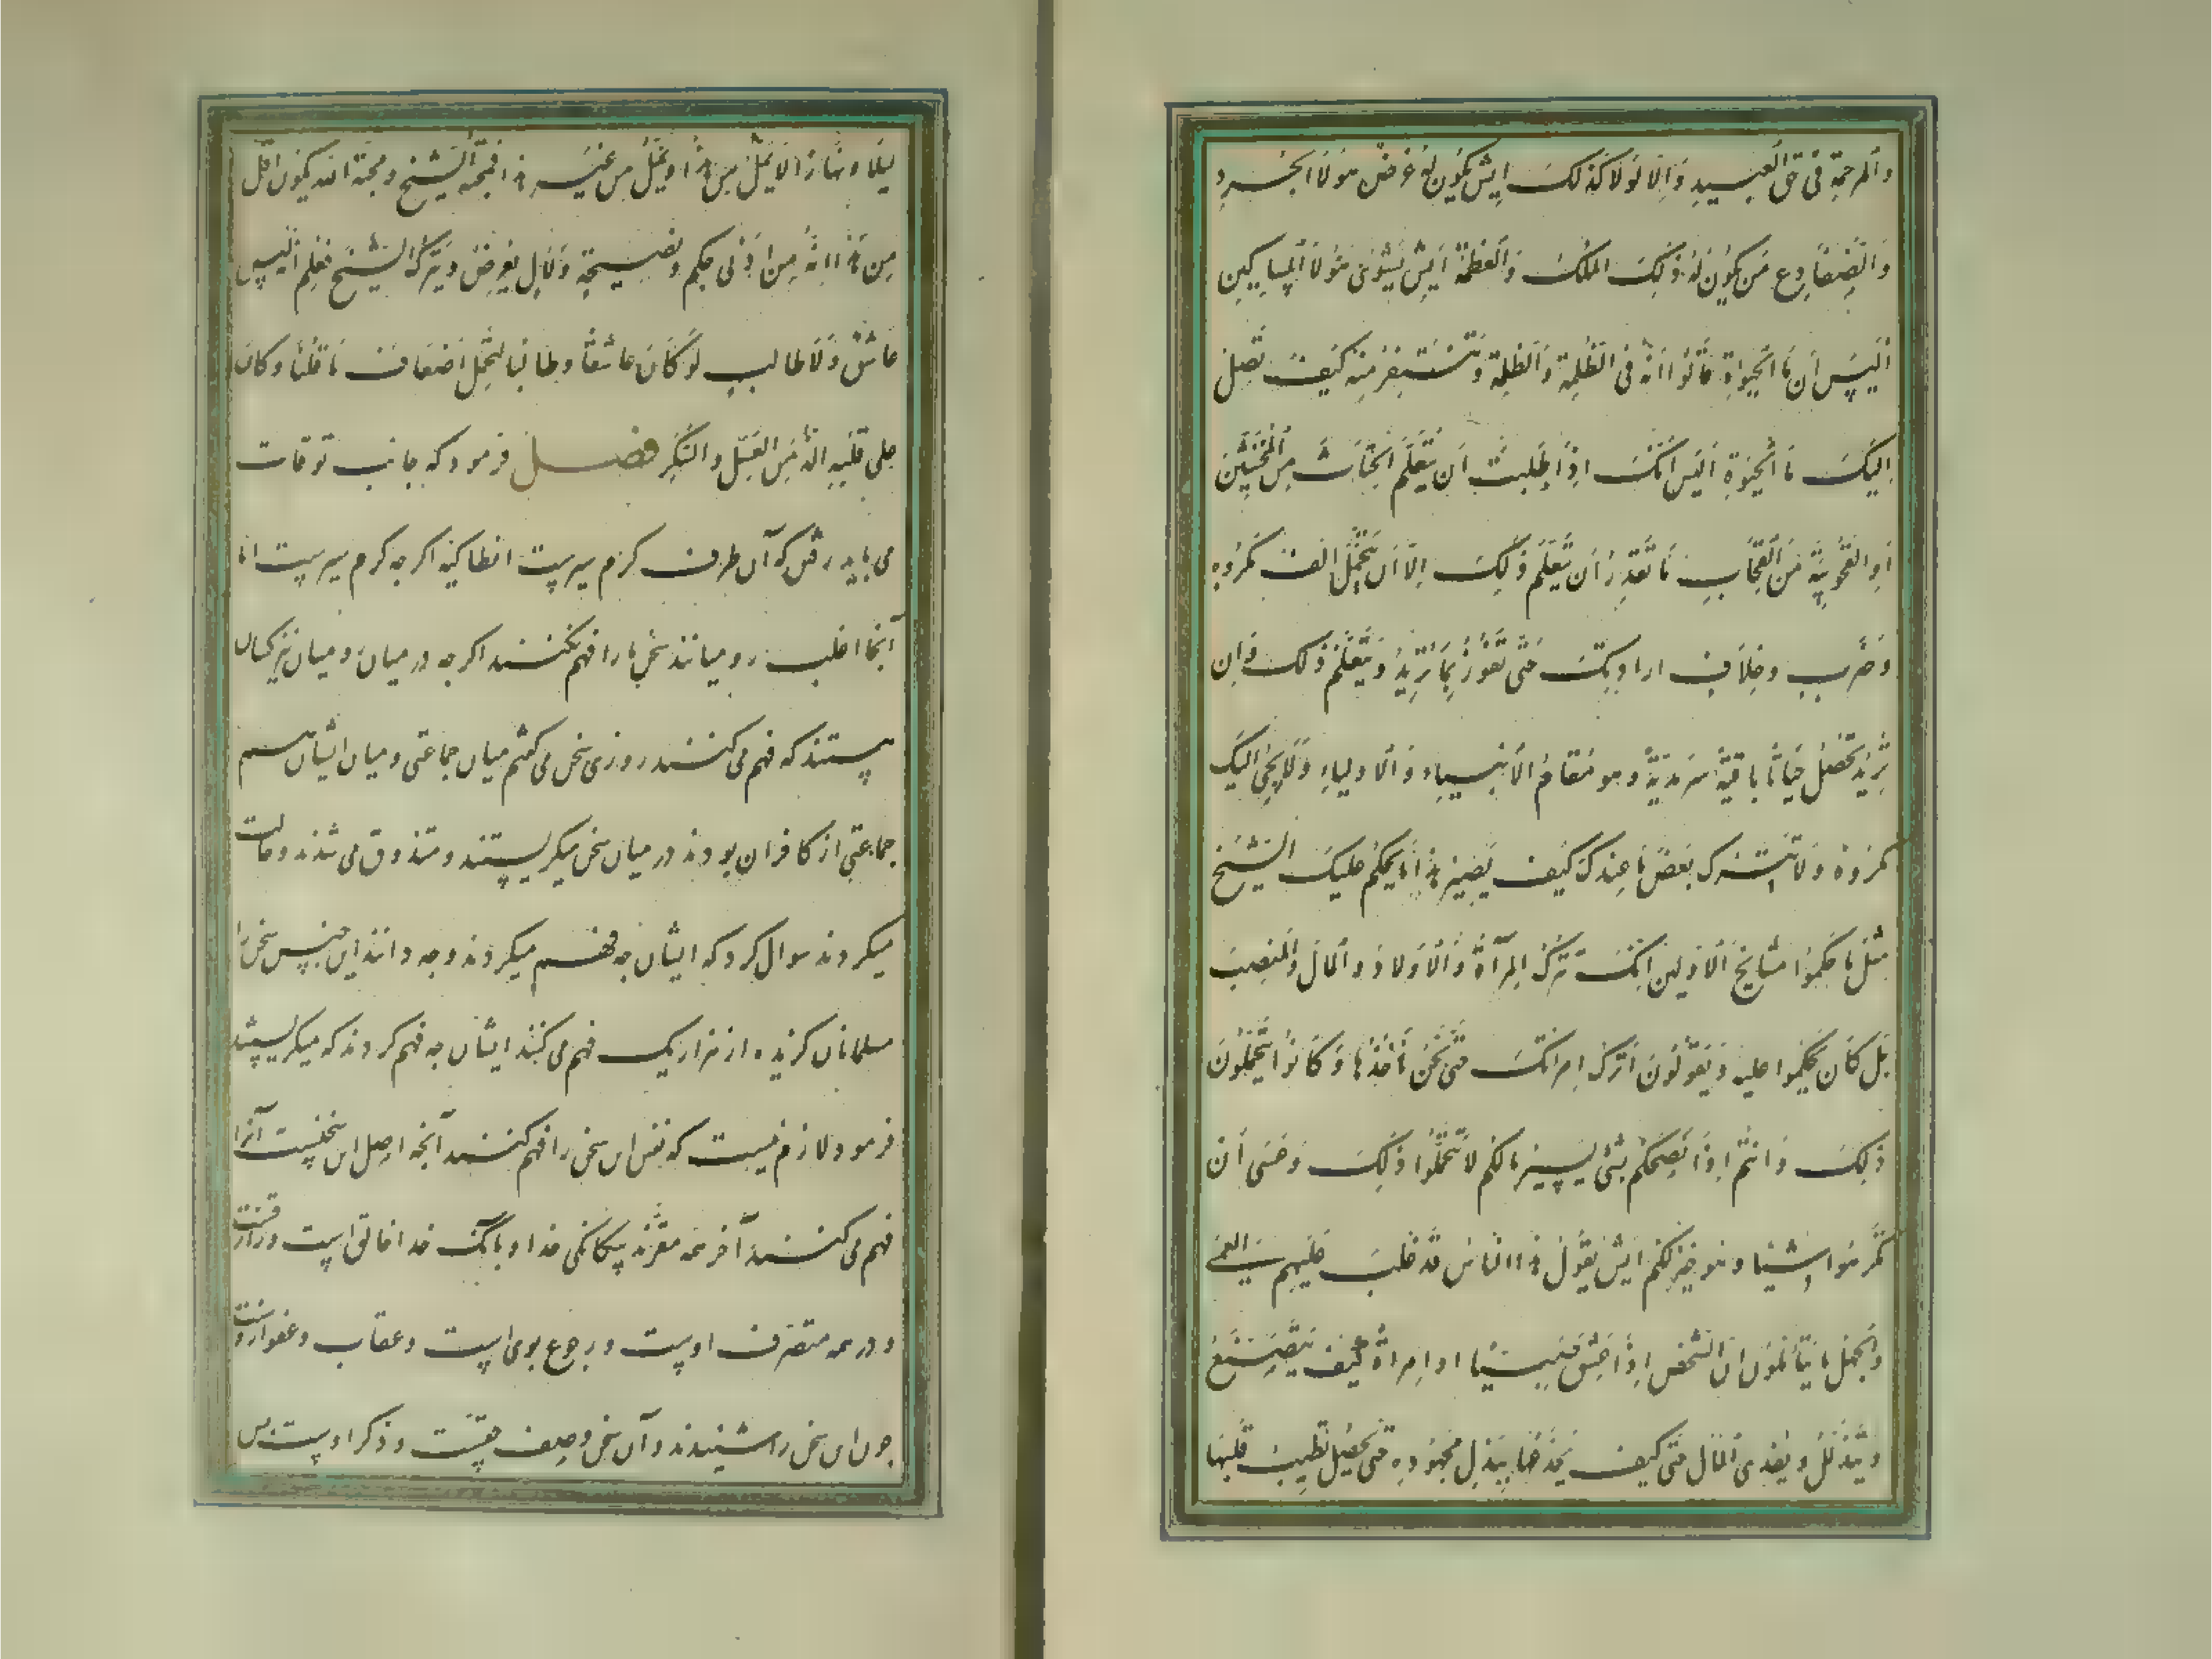 والمرحمة فی حق العبید والا لولا کذلک ایش یکون له غرض هولاء الجرد
والضفادع من یکون له ذلک الملک والعظمة ایش یسوی هولاء المساکین
الیس ان ماء الحیوة قالوا انه فی الظلمة والظلمة وتستنفر منه کیف تصل
الیک ماء الحیوة الیس انک اذا طلبت ان تتعلم الخباث من المخنثین
او القحوبیة من القحاب ما تقدر ان تتعلم ذلک الا ان تتحمل الف مکروه
وضرب وخلاف ارادتک حتی تفوز بما ترید وتتعلم ذلک وان
ترید تحصل حیاتا باقیة سرمدیة وهو مقام الانبیاء والاولیاء ولا یجی الیک
مکروه ولا تترک بعض ما عندک کیف یصیر هذا ما یحکم علیک الشیخ
مثل ما حکموا مشایخ الاولین انک تترک المرآة والاولاد والمال والمنصب
بل کان یحکموا علیه ویقولون اترک امراتک حتی نحن ناخذها وکانوا یتحملون
ذلک وانتم اذا نصحکم بشی یسیر مالکم لا تتحملوا ذلک وعسی ان
تکرهوا شیئا وهو خیر لکم ایش یقول هذا الناس قد غلب علیهم العمی
والجهل ما یتأملون ان الشخص اذا عشق صبیا او امراة کیف یتصنع
ویتذلل ویفدی المال حتی کیف یخدعها ببذل مجهوده حتی یحصل تطییب قلبها
لیلا ونهارا لا یمل من هذا ویمل من غیر هذا فمحبة الشیخ ومحبة الله یکون اقل
من هذا انه من ادنی حکم ونصیحة ودلال یعرض ویترک الشیخ فعلم انه لیس
عاشق ولا طالب لو کان عاشقا وطالبا لتحمل اضعاف ما قلنا وکان
علی قلبه الذ من العسل والسکر فصل فرمود که جانب توقات
می باید رفتن که آن طرف کرم سیر است انطاکیه اکرچه کرم سیر است اما
آنجا اغلب رومیانند سخن ما را فهم نکنند اکرچه در میان رومیان نیز کسان
هستند که فهم می کنند روزی سخن می کفتم میان جماعتی و میان ایشان هم
جماعتی از کافران بودند در میان سخن میکریستند و متذوق می شدند و حالت
میکردند سوال کرد که ایشان چه فهم میکردند و چه دانند این جنس سخن را
مسلمانان کزیده از هزار یک فهم می کنند ایشان چه فهم کردند که میکریستند
فرمود لازم نیست که نفس این سخن را فهم کنند آنچه اصل این سخنست آنرا
فهم می کنند آخر همه مقرند بیکانکی خدا و بآنک خدا خالق است و رازقست
و در همه متصرف اوست و رجوع بوی است و عقاب و عفو ازوست
چون این سخن را شنیدند و آن سخن وصف حقست و ذکر اوست پس